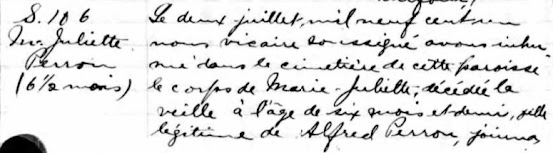 S. 106
M. Juliette
Perron
(6 1/2 mois)
Le deux juillet, mil neuf cent un
nous vicaire soussigné avons inhu-
mé dans le cimetière de cette paroisse
le corps de Marie-Juliette, décédée la
veille à l'âge de six mois et demi, fille
légitime de Alfred Perron, journa